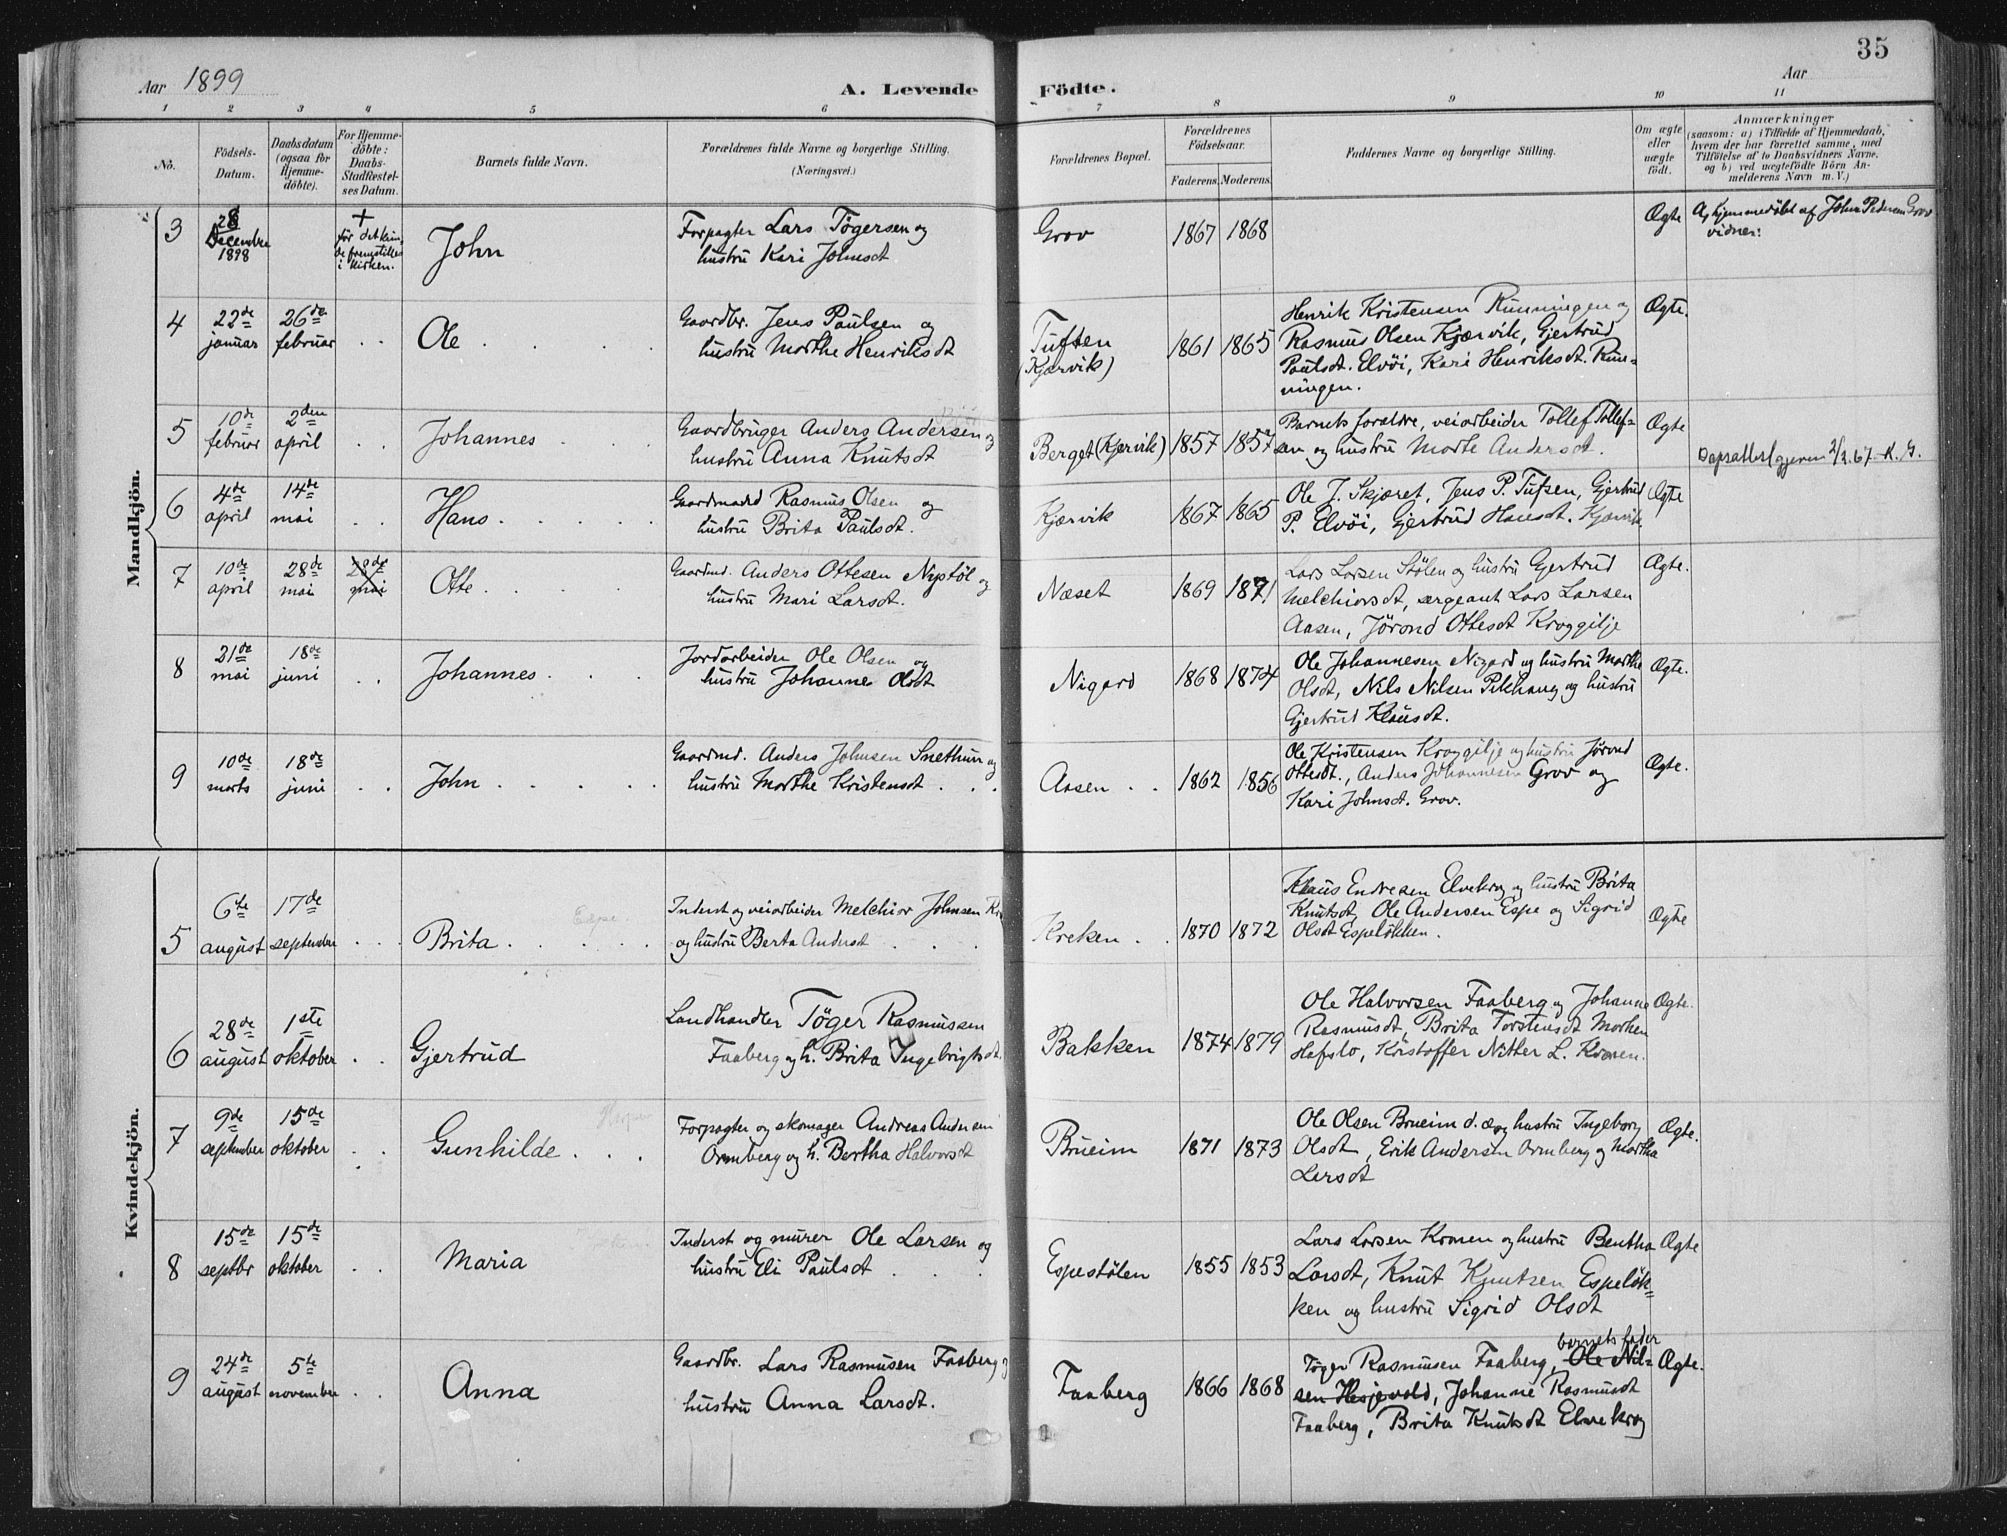 35
Aar 1899
A. Levende Födte.
Aar
1 2 3 4 5 6 7 8 9 10 11
No.
Födsels-Datum.
Daabsdatum (ogsaa for Hjemme-döbte).
For Hjemme-döbte: Daabs-Stadfæstel-ses Datum.
Barnets fulde Navn.
Forældrenes fulde Navne og borgerlige Stilling.
(Næringsvei.)
Forældrenes Bopæl.
Forældrenes Födselsaar.
Faderens. Moderens.
Faddernes Navne og borgerlige Stilling.
Om ægte eller uægte födt.
Anmærkninger
(saasom: a) i Tilfælde af Hjemmedaab,
hvem der har forrettet samme, med
Tilföielse af to Daabsvidners Navne,
og b) ved uægtefödte Börn An-
melderens Navn m. V.)
Mandkjön.
3 28 December 1898
+ før det kun-
de fremstilles
i kirken.
John
Forpagter Lars Tøgersen og
hustru Kari Johnsdt
Grov 1867 1868
Ægte
hjemmedøbt af John Pedersen Grov
vidner:
4 22de januar 26de februar . . Ole
Gaardbr. Jens Paulsen og
hustru Marthe Henriksdt
Tuften
(Kjærvik)
1861 1865
Henrik Kristensen Runningen og
Rasmus Olsen Kjærvik, Gjertrud
Paulsdt. Elvøi, Kari Henriksdt. Run-
ningen.
Ægte.
5 10de februar 2den april . . Johannes
Gaardbruger Anders Andersen og
hustru Anna Knutsdt
Berget (Kjærvik) 1857 1857
Barnets forældre, veiarbeider Tollef Tollef-
sen og hustru Marte Andersdt.
Ægte
Dapsattest gjeven 2/2.67 K. G.
6 4de april 14de mai . . Hans
Gaardmand Rasmus Olsen og
hustru Brita Paulsdt.
Kjærvik 1867 1865
Ole J. Skjæret, Jens P. Tufsen, Gjertrud
P. Elvøi, Gjertrud Hansdt. Kjærvik.
Ægte
7 10de april 28de mai 28de mai Otte
Gaardmd. Anders Ottesen Nystøl og
hustru Mari Larsdt.
Næset 1869 1871
Lars Larsen Stølen og hustru Gjertrud
Melchiorsdt, sergeant Lars Larsen
Aasen, Jørond Ottesdt Kroggilje
Ægte.
8 21de mai 18de juni . . Johannes
Jordarbeider Ole Olsen og
hustru Johanne Olsdt
Nigard 1868 1874
Ole Johannesen Nigard og hustru Marthe
Olsdt, Nels Nilsen Pikhaug og hustru
Gjertrud Klausdt.
Ægte.
9 10de marts 18de juni . . John
Gaardmd. Anders Johnsen Snethun og
hustru Marthe Kristensdt
Aasen 1862 1856
Ole Kristensen Kroggilje og hustru Jørond
Ottesdt., Anders Johannesen Grov og
Kari Johnsdt. Grov.
Ægte.
Kvindekjön.
5 6te august 17de september . . . Brita
Espe.
Inderst og veiarbeider Melchior Johnsen
og hustru Berta Andersdt
Kreken 1870 1872
Klaus Endresen Elvekrog og hustru Brita
Knutsdt, Ole Andersen Espe og Sigrid
Olsdt Espeløkken.
Ægte
6 28de august 1ste oktober . . Gjertrud
Landhandler Tøger Rasmussen
Faaberg og h. Brita Ingebrigtsdt.
Bakken 1874 1879
Ole Halvorsen Faaberg og Johanne
Rasmusdt, Brita Torstensdt Morken
Hafslo, Kristoffer Nitter L. Kroken.
Ægte.
7 9de september 15de oktober . . Gunhilde
Forpagter og skomager Andreas Andersen
Ormberg og h. Bertha Halvorsdt
Brueim 1871 1873
Ole Olsen Brueim d. æ. og hustru Ingeborg
Olsdt, Erik Andersen Ormberg og Martha
Larsdt
Ægte.
8 15de septbr 15de oktober . . Maria
Inderst og murer Ole Larsen og
hustru Eli Paulsdt
Espestølen 1855 1853
Lars Larsen Kroken og hustru Bentha
Larsdt, Knut Knutsen Espeløk-
ken og hustru Sigrid Olsdt
Ægte
9 24de august 5te november . . Anna
Gaardbr. Lars Rasmusen Faaberg og
hustru Anna Larsdt.
Faaberg 1866 1868
barnets fader
Tøger Rasmusen Faaberg, Ole Nil-
sen Hesjevold, Johanne Rasmusdt
Faaberg, Brita Knutsdt Elvekrog
Ægte.